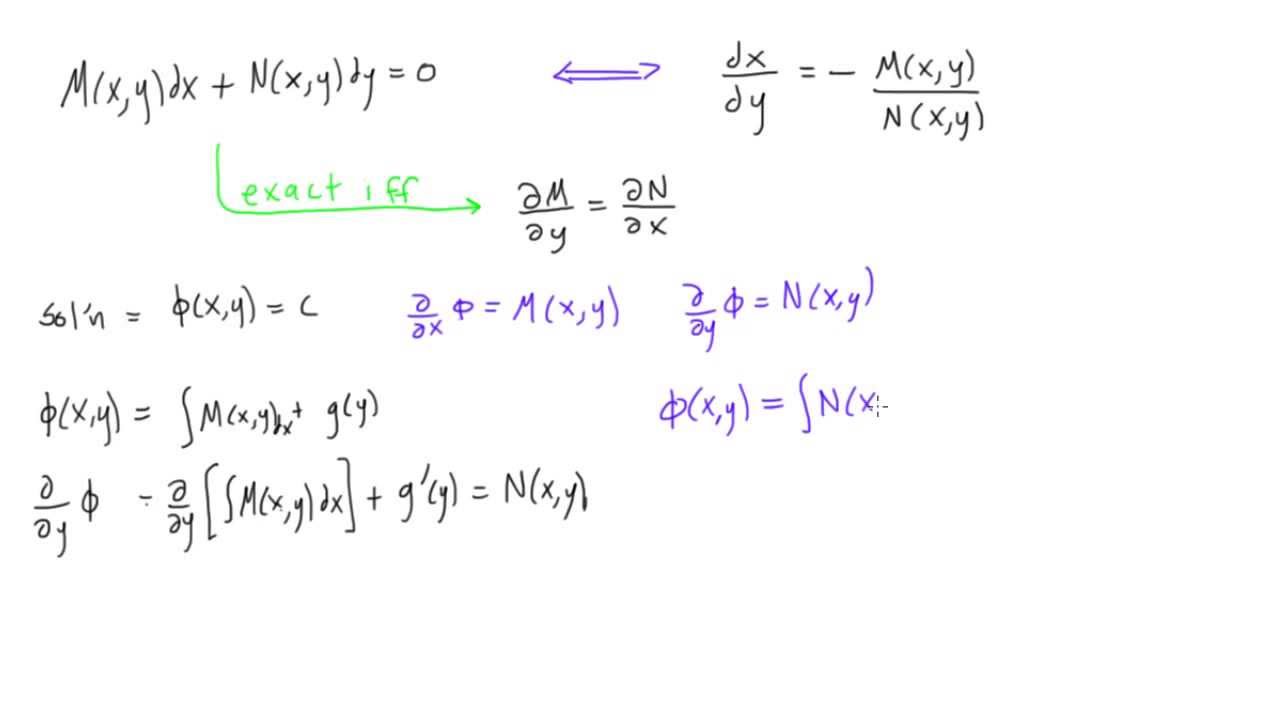 M(x,y)dx + N(x,y)dy = 0 ⟺ dx/dy = - M(x,y)/N(x,y)
exact iff ∂M/∂y = ∂N/∂x
sol'n = ϕ(x,y) = C ∂/∂x ϕ = M(x,y) ∂/∂y ϕ = N(x,y)
ϕ(x,y) = ∫M(x,y)dx + g(y) ϕ(x,y) = ∫N(x
∂/∂y ϕ - ∂/∂y [∫M(x,y)dx] + g'(y) = N(x,y)